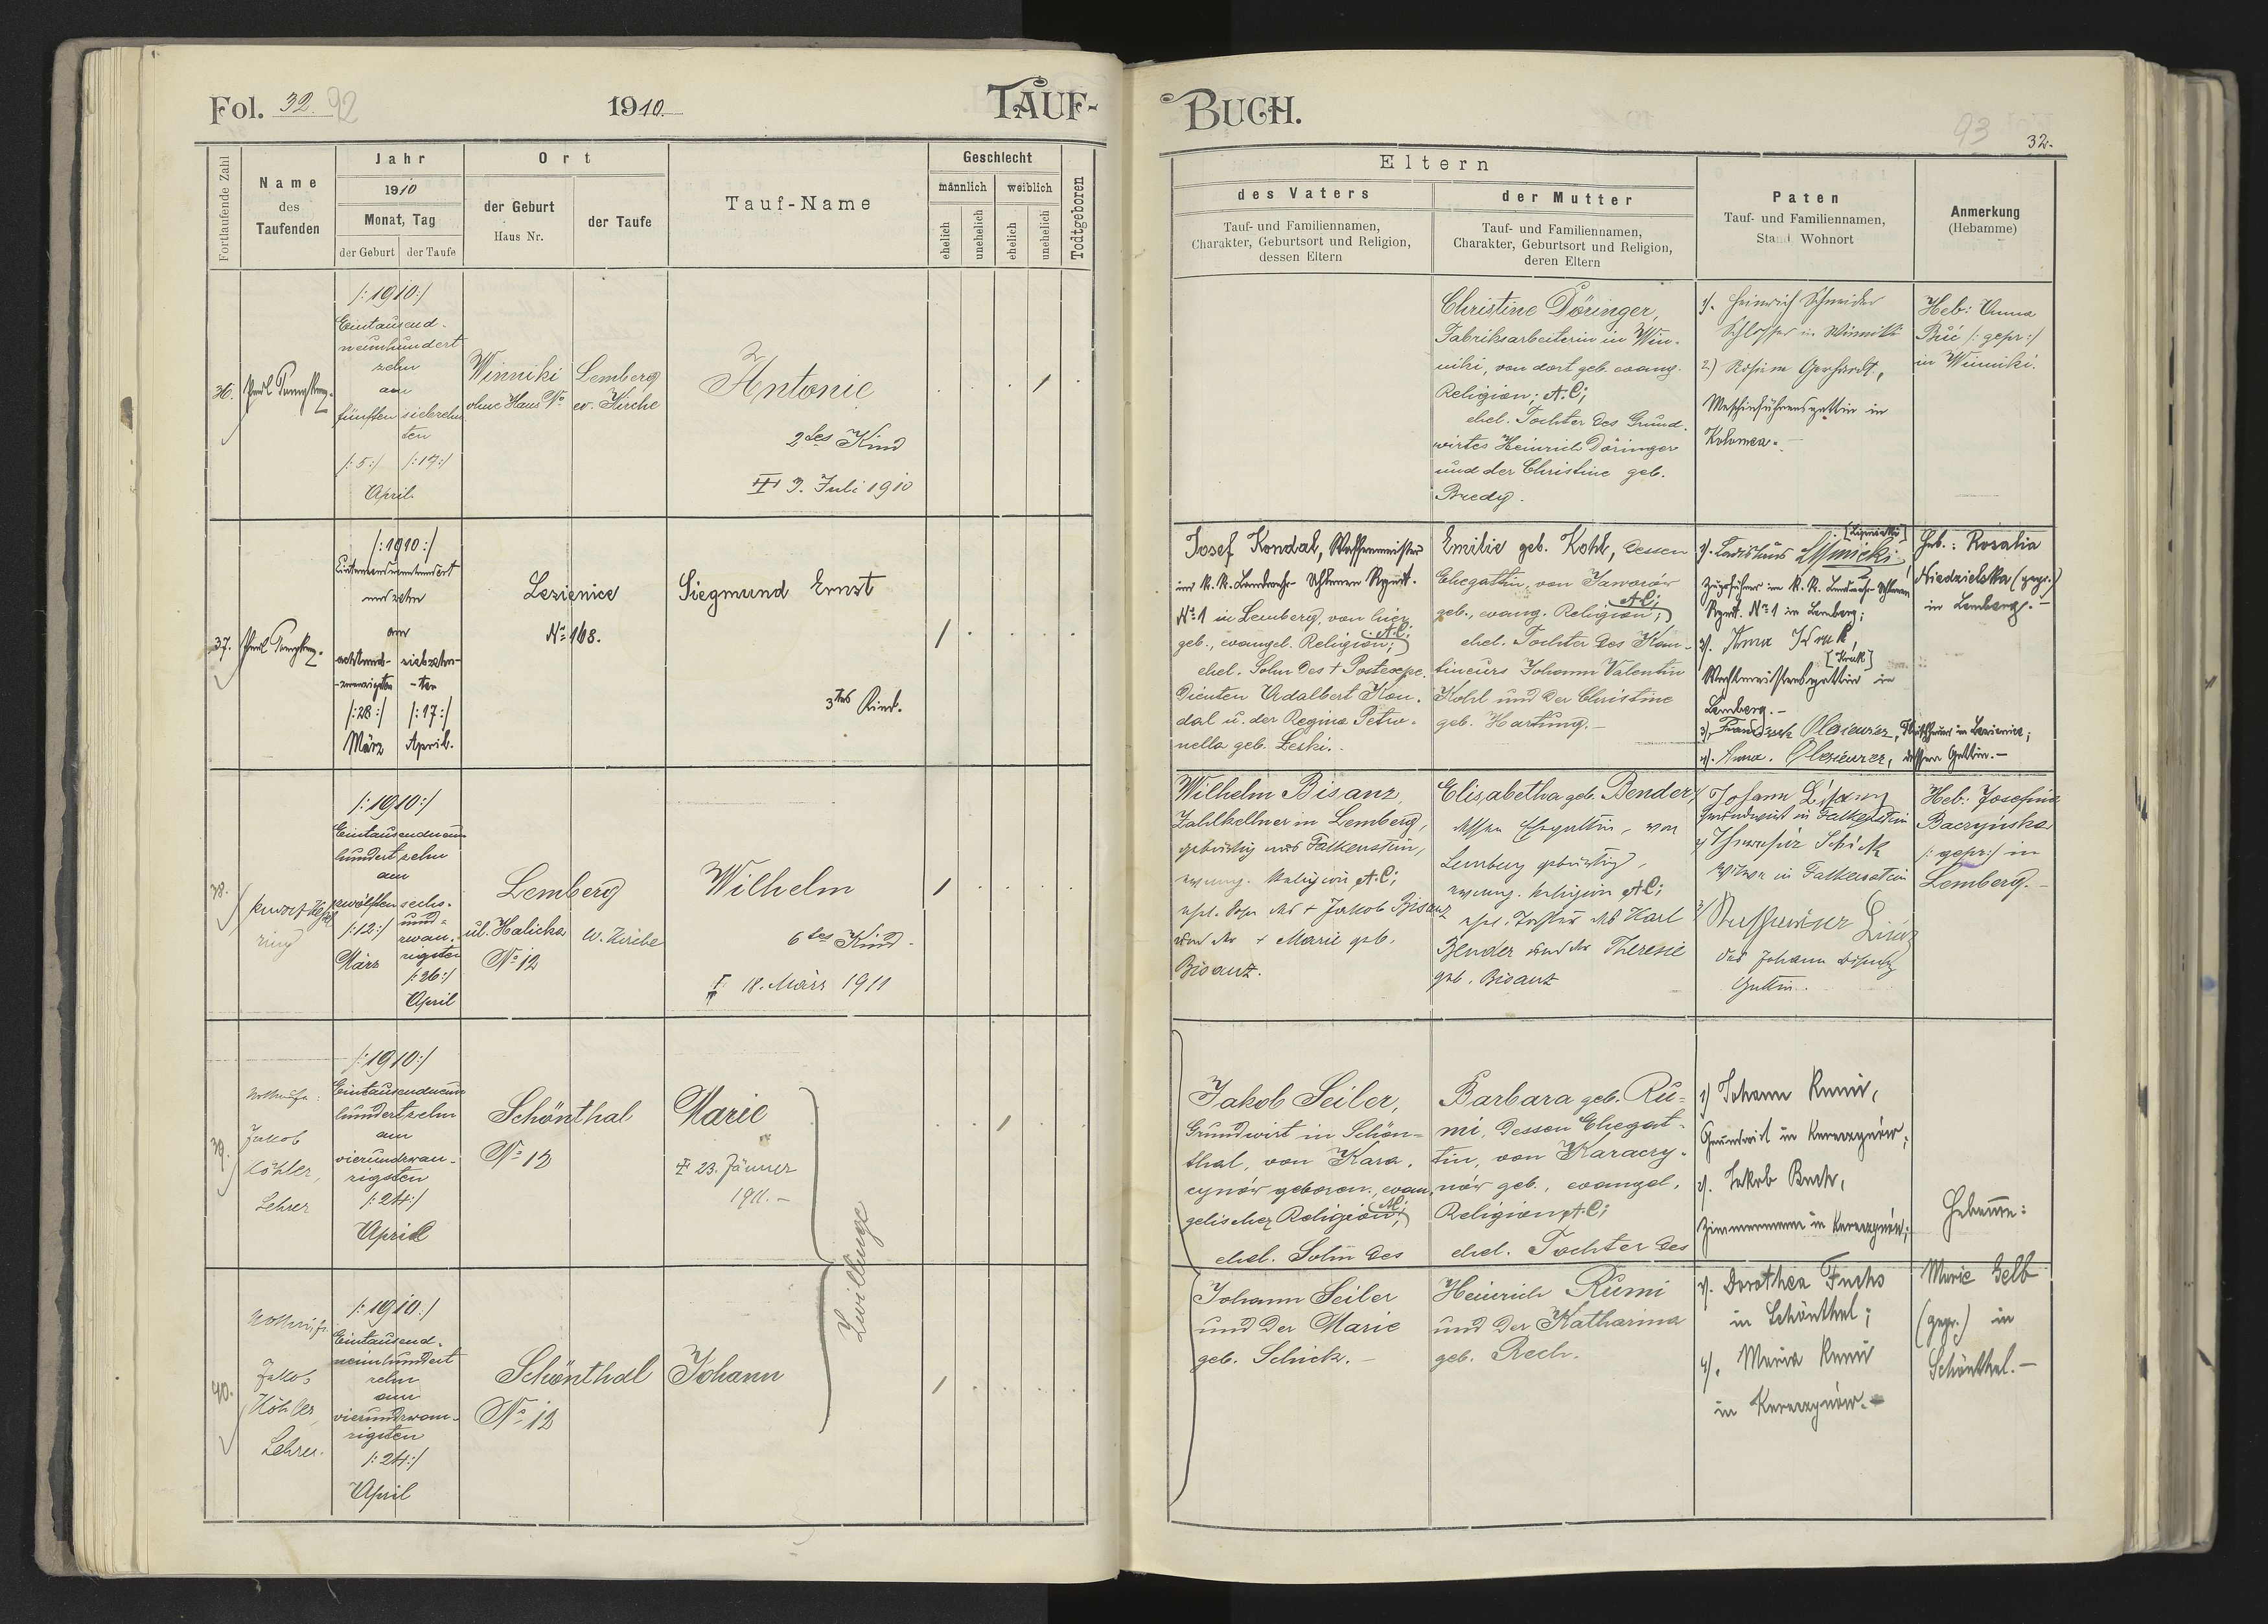 Fol. 32. 92
1910.
TAUF-
Fortlaufende Zahl
Name
des
Taufenden
Jahr
1910
Monat, Tag
der Geburt
der Taufe
Ort
der Geburt
Haus Nr.
der Taufe
Tauf-Name
Geschlecht
männlich
weiblich
ehelich
unehelich
ehelich
unehelich
Todtgeboren
36.
/:1910:/
Eintausend-
neunhundert
zehn
am
fünften
siebzehn
ten
/:5:/ /:17:/
April
Winniki
ohne Haus No
Lemberg
ev. Kirche
Antonie
2tes Kind
3. Juli 1910
37.
/:1910:/
und zehn
am
achtund-
-zwanzigsten
siebzehn-
-ten
/:28:/ /:17:/
März April.
Lezienice
No 168.
Siegmund Ernst
3tes Kind.
38.
/:1910:/
Eintausendneun
hundert zehn
am
zwölften
/:12:/
März
sechs-
und-
zwan-
zigsten
/:26:/
April
Lemberg
ul. Halicka
No 12
ev. Kirche
Wilhelm
6tes Kind.
18. März 1911
39.
Jakob
Köhler,
Lehrer
/:1910:/
Eintausendneun
hundert zehn
am
vierundzwan-
zigsten
/:24:/
April
Schönthal
No 12
Marie
23. Jänner
1911.-
Zwillinge
40.
Jakob
Köhler,
Lehrer.
/:1910:/
Eintausend-
neunhundert
zehn
am
vierundzwan-
zigsten
/:24:/
April
Schönthal
No 12
Johann
BUCH.
93
32.
Eltern
des Vaters
Tauf- und Familiennamen,
Charakter, Geburtsort und Religion,
dessen Eltern
der Mutter
Tauf- und Familiennamen,
Charakter, Geburtsort und Religion,
deren Eltern
Paten
Tauf- und Familiennamen,
Stand Wohnort
Anmerkung
(Hebamme)
Christine Döringer,
Fabriksarbeiterin in Win-
niki, von dort geb. evang.
Religion; A.C;
ehel. Tochter des Grund-
wirtes Heinrich Döringer
und der Christine geb.
Bredy.
1). Heinrich Schneider
Schlosser in Winniki
2) Gerhardt,
in
Kolomea.-
Heb: Anna
/:gepr:/
in Winniki.
Josef Kondal, Waffenmeister
im K.K. Landwehr- Uhlanen Rgmt.
No 1 in Lemberg, von hier
geb., evangel. Religion; A.C.
ehel. Sohn des + Postexpe-
dienten Adalbert Kon-
dal u. der Regina Petro-
nella geb. Leski.-
Emilie geb. Kohl, dessen
Ehegattin, von Jaworów
geb., evang. Religion; A.C;
ehel. Tochter des Kan-
tineurs Johann Valentin
Kohl und der Christine
geb. Hartung.-
[Lipnicki]
1). Ladislaus Lipnicki
Zugsführer im K.K. Landwehr Uhlanen
Rgmt. No 1 in Lemberg;
2). Anna Kruk,
[Kruk]
Wachtmeistersgattin in
Lemberg.-
4). Anna dessen Gattin.-
Heb.: Rosalia
Niedzielska (gepr.)
in Lemberg.-
Wilhelm Bisanz,
Zahlkellner in Lemberg,
gebürtig aus Falkenstein,
evang. Religion A.C;
ehel. Sohn des + Jakob Bisanz
und der + Marie geb.
Bisanz.
Elisabetha geb. Bender,
dessen Ehegattin, von
Lemberg gebürtig,
evang. Religion A.C;
ehel. Tochter des Karl
Bender und der Theresie
geb. Bisanz
Johann
Grundwirt in Falkenstein
Schick
Witwe in Falkenstein
des Johann
Gattin.
Heb: Josefine
Baczyńska
/:gepr:/ in
Lemberg.-
Jakob Seiler,
Grundwirt in Schön-
thal, von Kara-
czynów geboren, evan-
gelischer Religion; A.C;
ehel. Sohn des
Johann Seiler
und der Marie
geb. Schick.-
Barbara geb. Ru-
mi, dessen Ehegat-
tin, von Karaczy-
nów geb., evangel.
Religion A.C;
ehel. Tochter des
Heinrich Rumi
und der Katharina
geb. Rech.
1) Johann Rumi,
Grundwirt in Karaczynów;
2). Jakob
Zimmermann in Karaczynów;
3). Dorothea Fuchs
in Schönthal;
4). Maria Rumi
in Karaczynów.-
Hebamme:
Marie Gelb
(gepr.) in
Schönthal.-